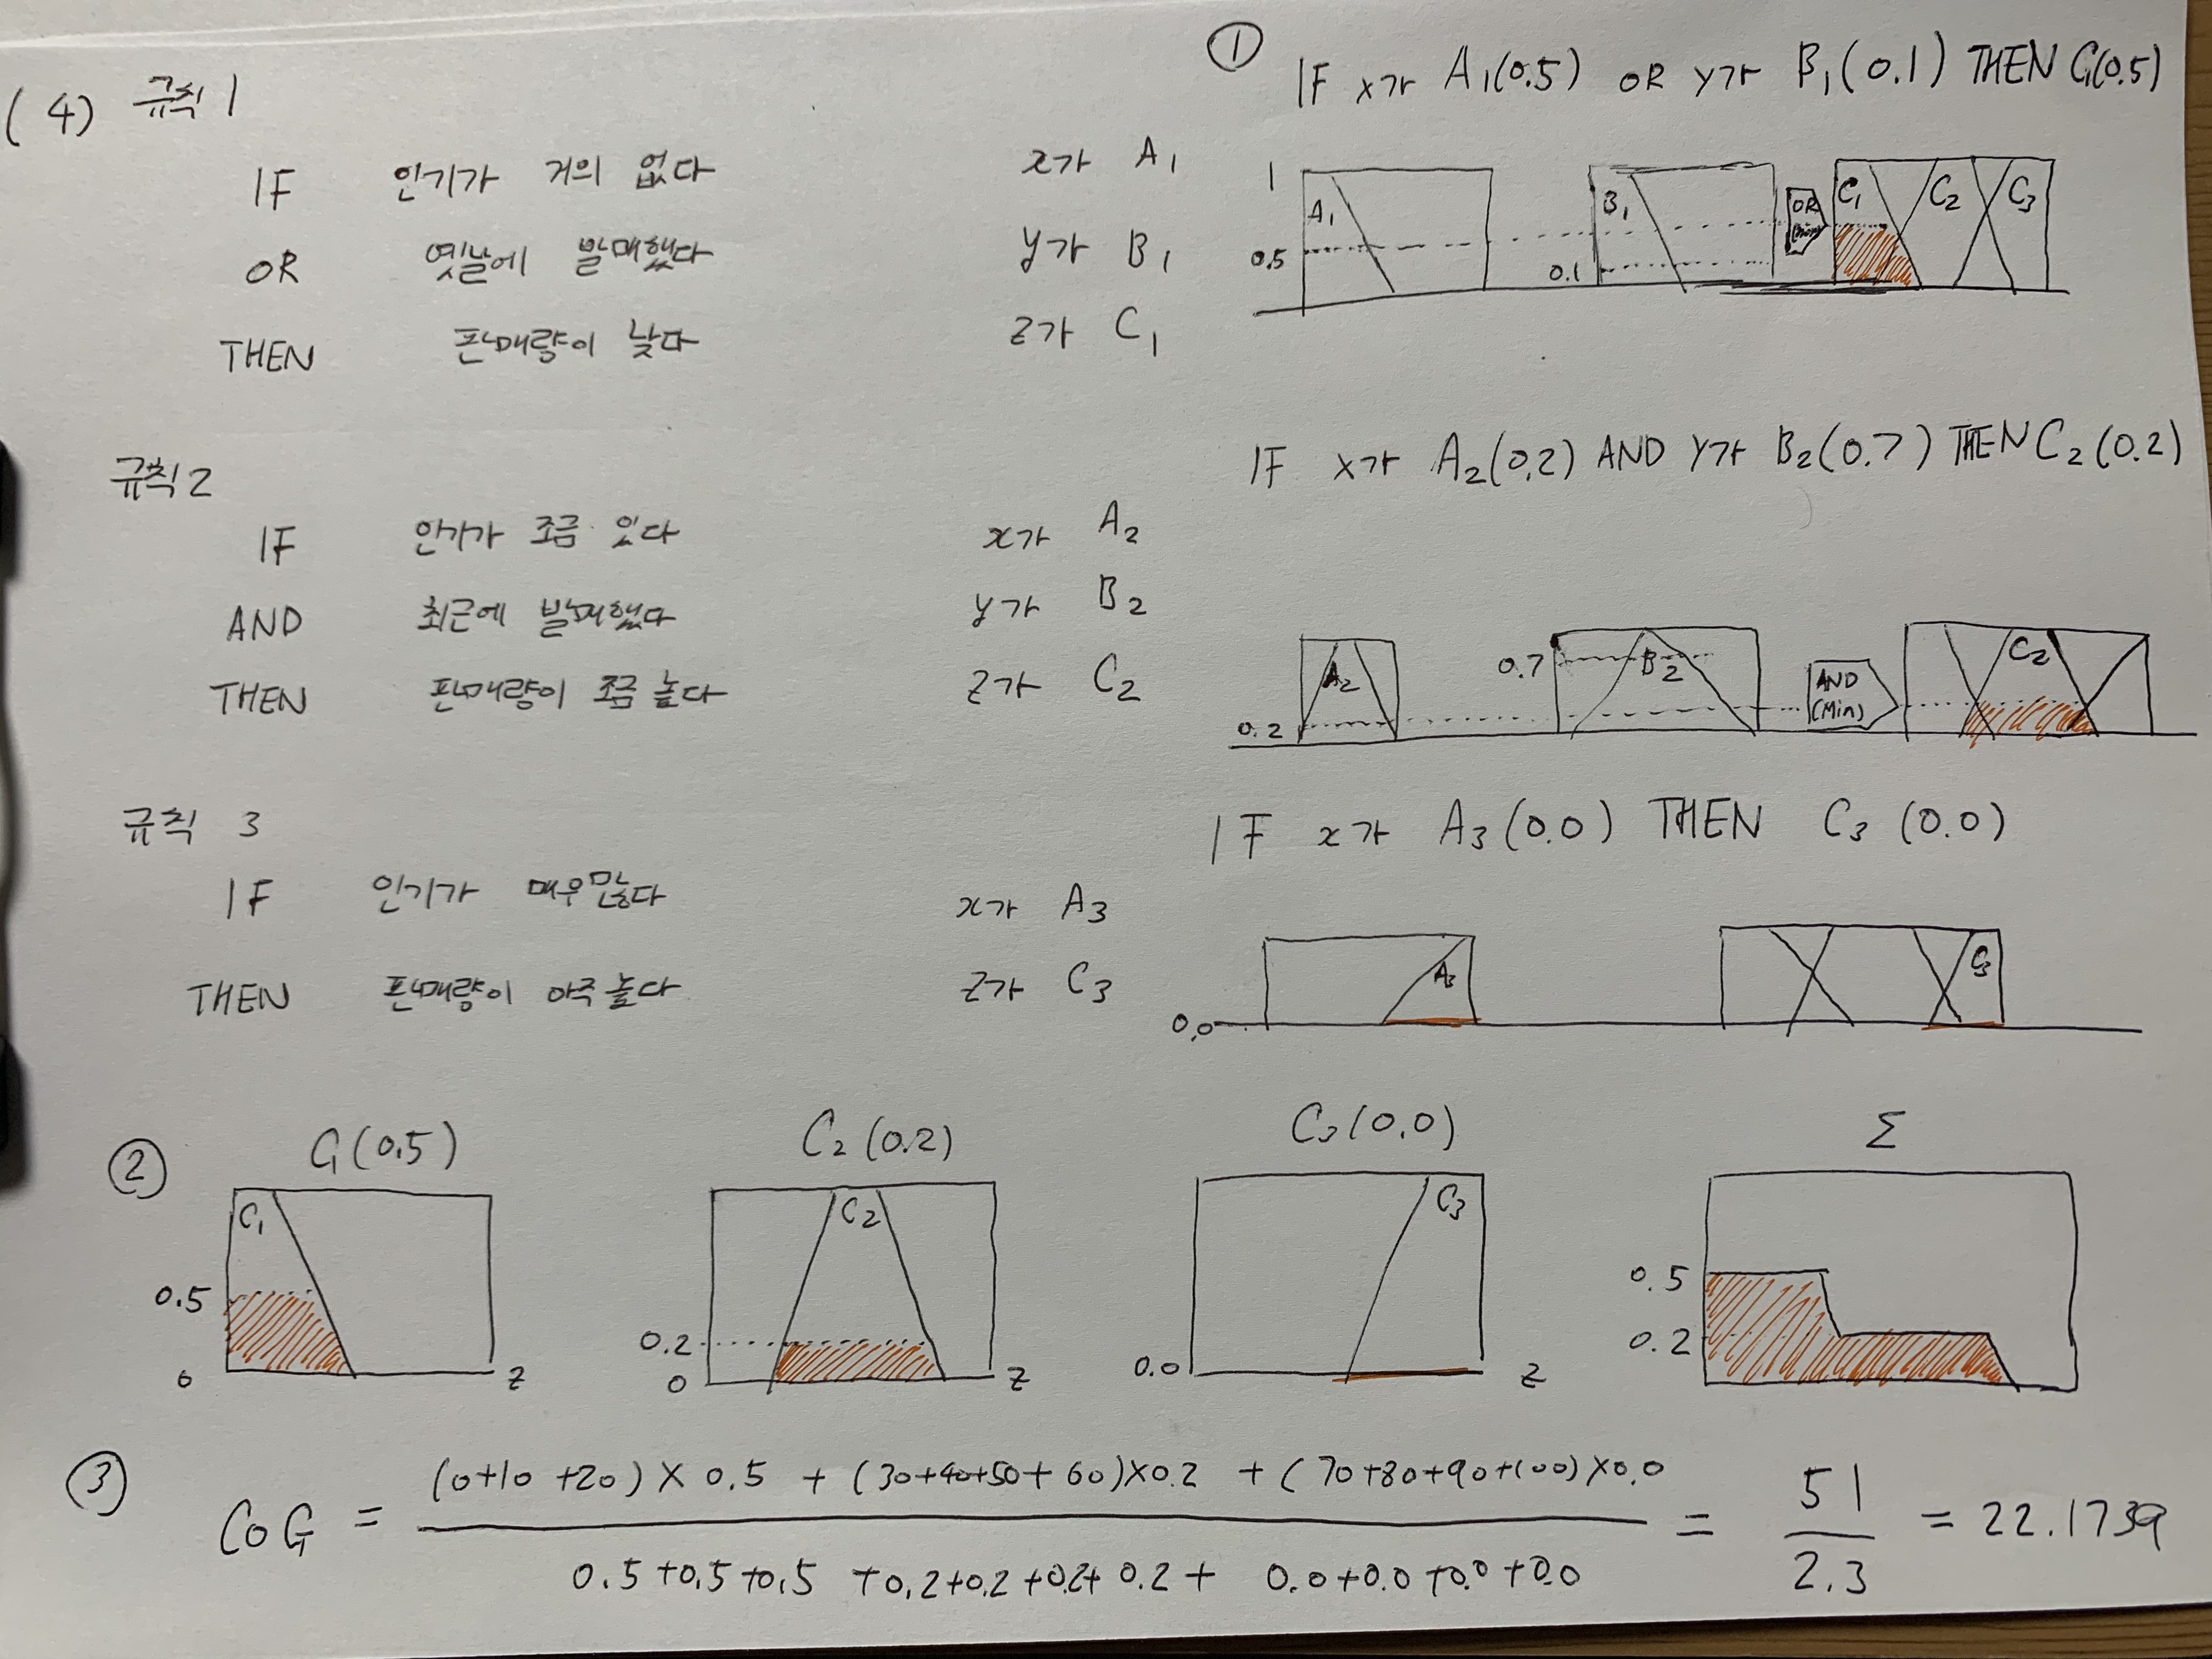 (4) 규칙 1
IF 인기가 거의 없다 x가 A₁
OR 옛날에 발매했다 y가 B₁
THEN 판매량이 낮다 z가 C₁
규칙 2
IF 인기가 조금 있다 x가 A₂
AND 최근에 발매했다 y가 B₂
THEN 판매량이 조금 높다 z가 C₂
규칙 3
IF 인기가 매우 많다 x가 A₃
THEN 판매량이 아주 높다 z가 C₃
① IF x가 A₁(0.5) OR y가 B₁(0.1) THEN C₁(0.5)
1 A₁ B₁ OR C₁ C₂ C₃
0.5 0.1
IF x가 A₂(0.2) AND y가 B₂(0.7) THEN C₂(0.2)
A₂ 0.7 B₂ AND (Min) C₂
0.2
IF x가 A₃(0.0) THEN C₃(0.0)
A₃ C₃
0.0
② C₁(0.5) C₂(0.2) C₃(0.0) Σ
C₁ C₂ C₃
0.5 0.2 0.5
0.0 0.2
0 z 0 z z
③ CoG = (0+10+20)×0.5 + (30+40+50+60)×0.2 + (70+80+90+100)×0.0 = 51 = 22.1739
0.5+0.5+0.5+0.2+0.2+0.2+0.2+0.0+0.0+0.0+0.0 2.3